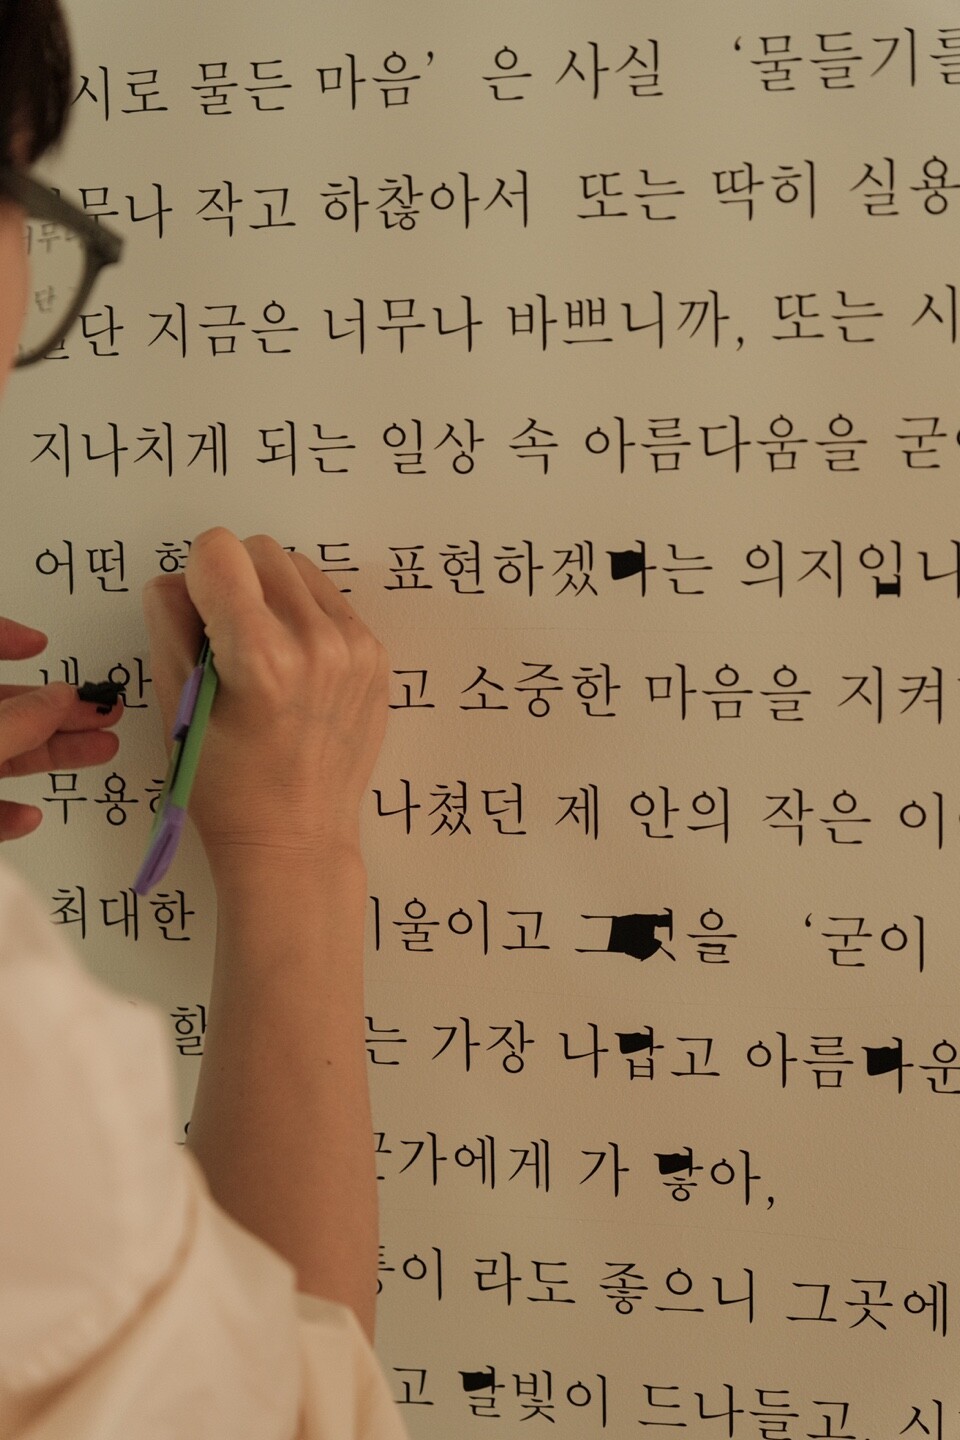 시로 물든 마음’ 은 사실 ‘물들기를
너무나 작고 하찮아서 또는 딱히 실용
단 지금은 너무나 바쁘니까, 또는 시
지나치게 되는 일상 속 아름다움을 굳이
어떤 표현하겠다는 의지입니
내 안 고 소중한 마음을 지켜
무용 나쳤던 제 안의 작은
최대한 기울이고 그것을 ‘굳이
할 는 가장 나답고 아름다운
가에게 가 닿아,
이 라도 좋으니 그곳에
고 달빛이 드나들고, 시